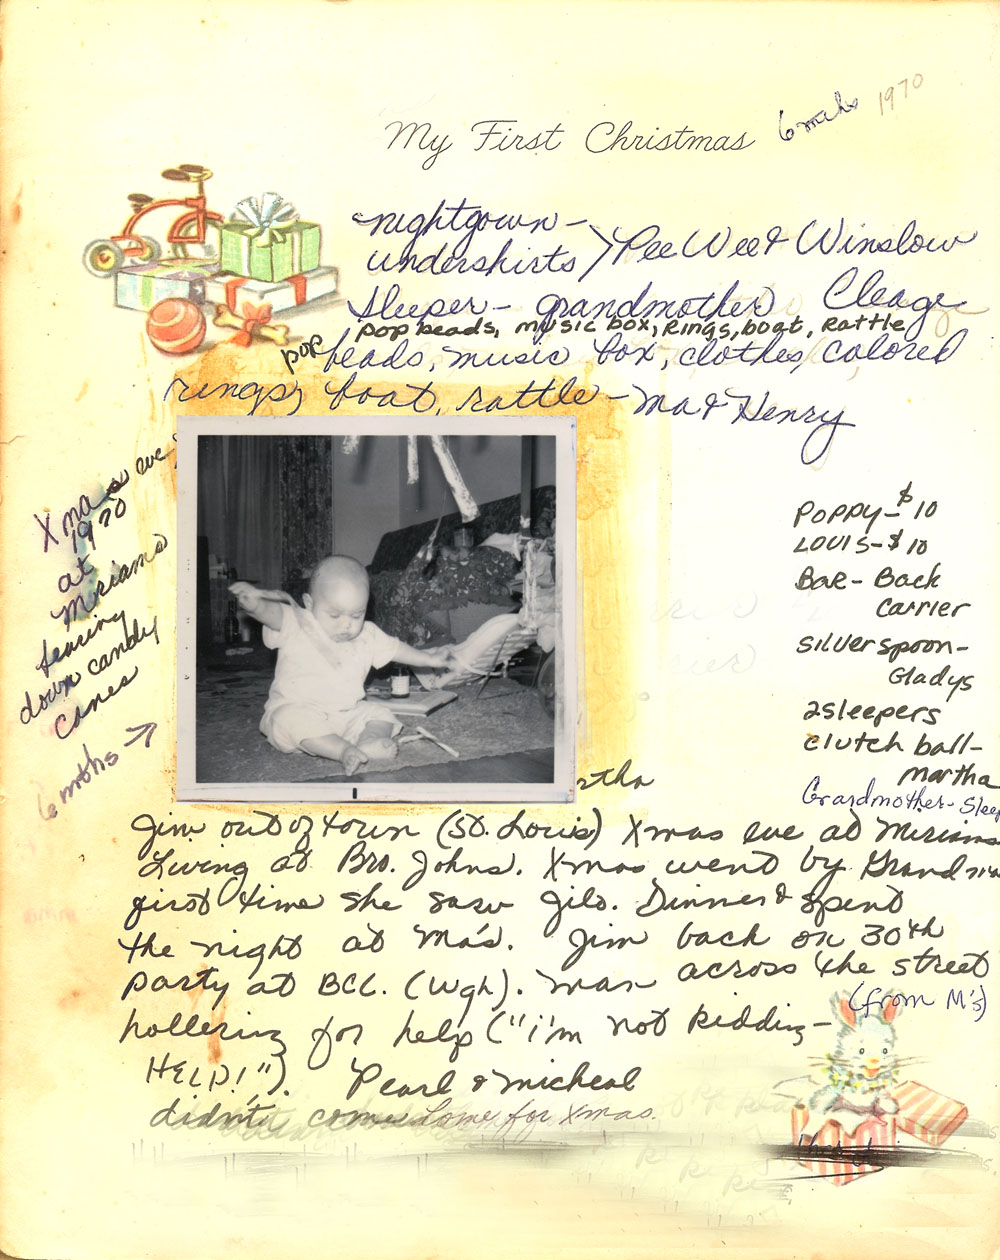 6 mths 1970
My First Christmas
nightgown -
undershirts > Pee Wee & Winslow
sleeper - grandmother Cleage
pop beads, music box, rings, boat, rattle,
pop beads, music box, clothes, colored
rings, boat, rattle - Ma & Henry
Xmas eve
1970
at
Miriams
tearing
down candy
canes
6 mths →
POPPY - $10
LOUIS - $10
Bar - Back
Carrier
silver spoon -
Gladys
2 sleepers
clutch ball -
martha
Grandmother - Sleep
rtha
Jim out of town (St. Louis) Xmas eve at Miriams
Living at Bro. Johns. Xmas went by Grandma
first time she saw Jilo. Dinner & spent
the night at Ma's. Jim back on 30th
party at BCL. (ugh). man across the street
(from M's)
hollering for help ("i'm not kidding -
HELP!"). Pearl & micheal
didn't come home for Xmas.